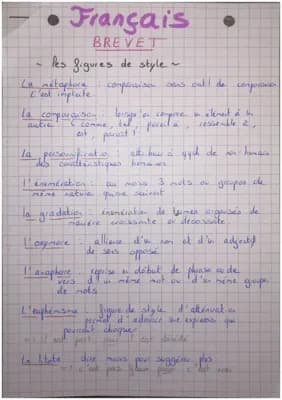 Français
BREVET
~ Les figures de style ~
La métaphore : comparaison sans outil de comparaison
C'est implicite
La comparaison : lorsqu'on compare un élément à un
autre " comme, tel, pareil à, ressemble à,
est, paraît !
La personnification : attribuer à qqch de non humain
des caractéristiques humaines
L'énumération : au moins 3 mots ou groupes de
même nature qui se suivent
La gradation : énumération de termes organisés de
manière croissante ou décroissante.
L'oxymore : alliance d'un nom et d'un adjectif
de sens opposé
L'anaphore : reprise en début de phrase ou de
vers d'un même mot ou d'un même groupe
de mots
L'euphémisme : figure de style d'atténuation
permet d'adoucir une expression qui
pourrait choquer
=> ! est parti pour ! est décédé
La litote : dire moins pour suggérer plus
=> ! c'est pas pour c'est